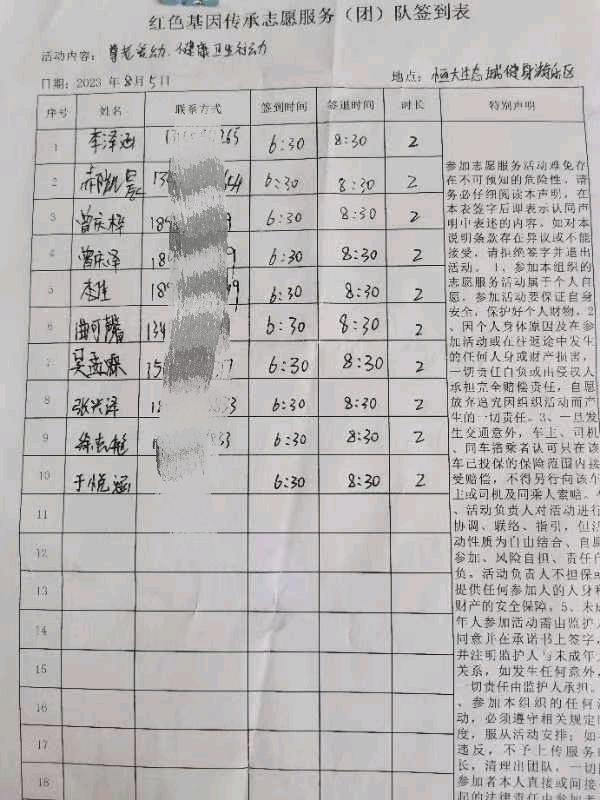 红色基因传承志愿服务（团）队签到表
活动内容: 尊老爱幼、健康卫生行动
日期: 2023 年 8 月 5 日 地点: 恒大生态城健身游乐区
序号 姓名 联系方式 签到时间 签退时间 时长 特别声明
1 李泽涵 6:30 8:30 2
2 6:30 8:30 2
3 曾庆桦 6:30 8:30 2
4 曾庆泽 6:30 8:30 2
5 6:30 8:30 2
6 曲可馨 134 6:30 8:30 2
7 吴孟霖 6:30 8:30 2
8 张兴泽 6:30 8:30 2
9 6:30 8:30 2
10 于悦涵 6:30 8:30 2
11
12
13
14
15
16
17
18
参加志愿服务活动难免存
在不可预知的危险性，请
务必仔细阅读本声明，在
本表签字后即表示认同声
明中表述的内容。如对本
说明条款存在异议或不能
接受，请拒绝签字并退出
活动。1、参加本组织的
志愿服务活动属于个人自
愿，参加活动要保证自身
安全，保护好个人财物。2
、因个人身体原因及在参
加活动或在往返途中发生
的任何人身或财产损害，
一切责任自负或由侵权人
承担完全赔偿责任，自愿
放弃追究因组织活动而产
生的一切责任。3、一旦发
生交通意外，车主、司机
、同车搭乘者认可只在该
车已投保的保险范围内接
受赔偿，不得另行向该车
上或司机及同乘人索赔。
、活动负责人对活动进行
协调、联络、指引，但活
动性质为自由结合、自愿
参加、风险自担、责任自
负，活动负责人不担保或
提供任何参加人的人身和
财产的安全保障。5、未成
年人参加活动需由监护人
同意并在承诺书上签字，
并注明监护人与未成年人
关系，如发生任何意外，
一切责任由监护人承担。
、参加本组织的任何活
动，必须遵守相关规定制
度，服从活动安排；如有
违反，不予上传服务时
长，清理出团队。一切因
参加者本人直接或间接引
起的法律责任由参加者